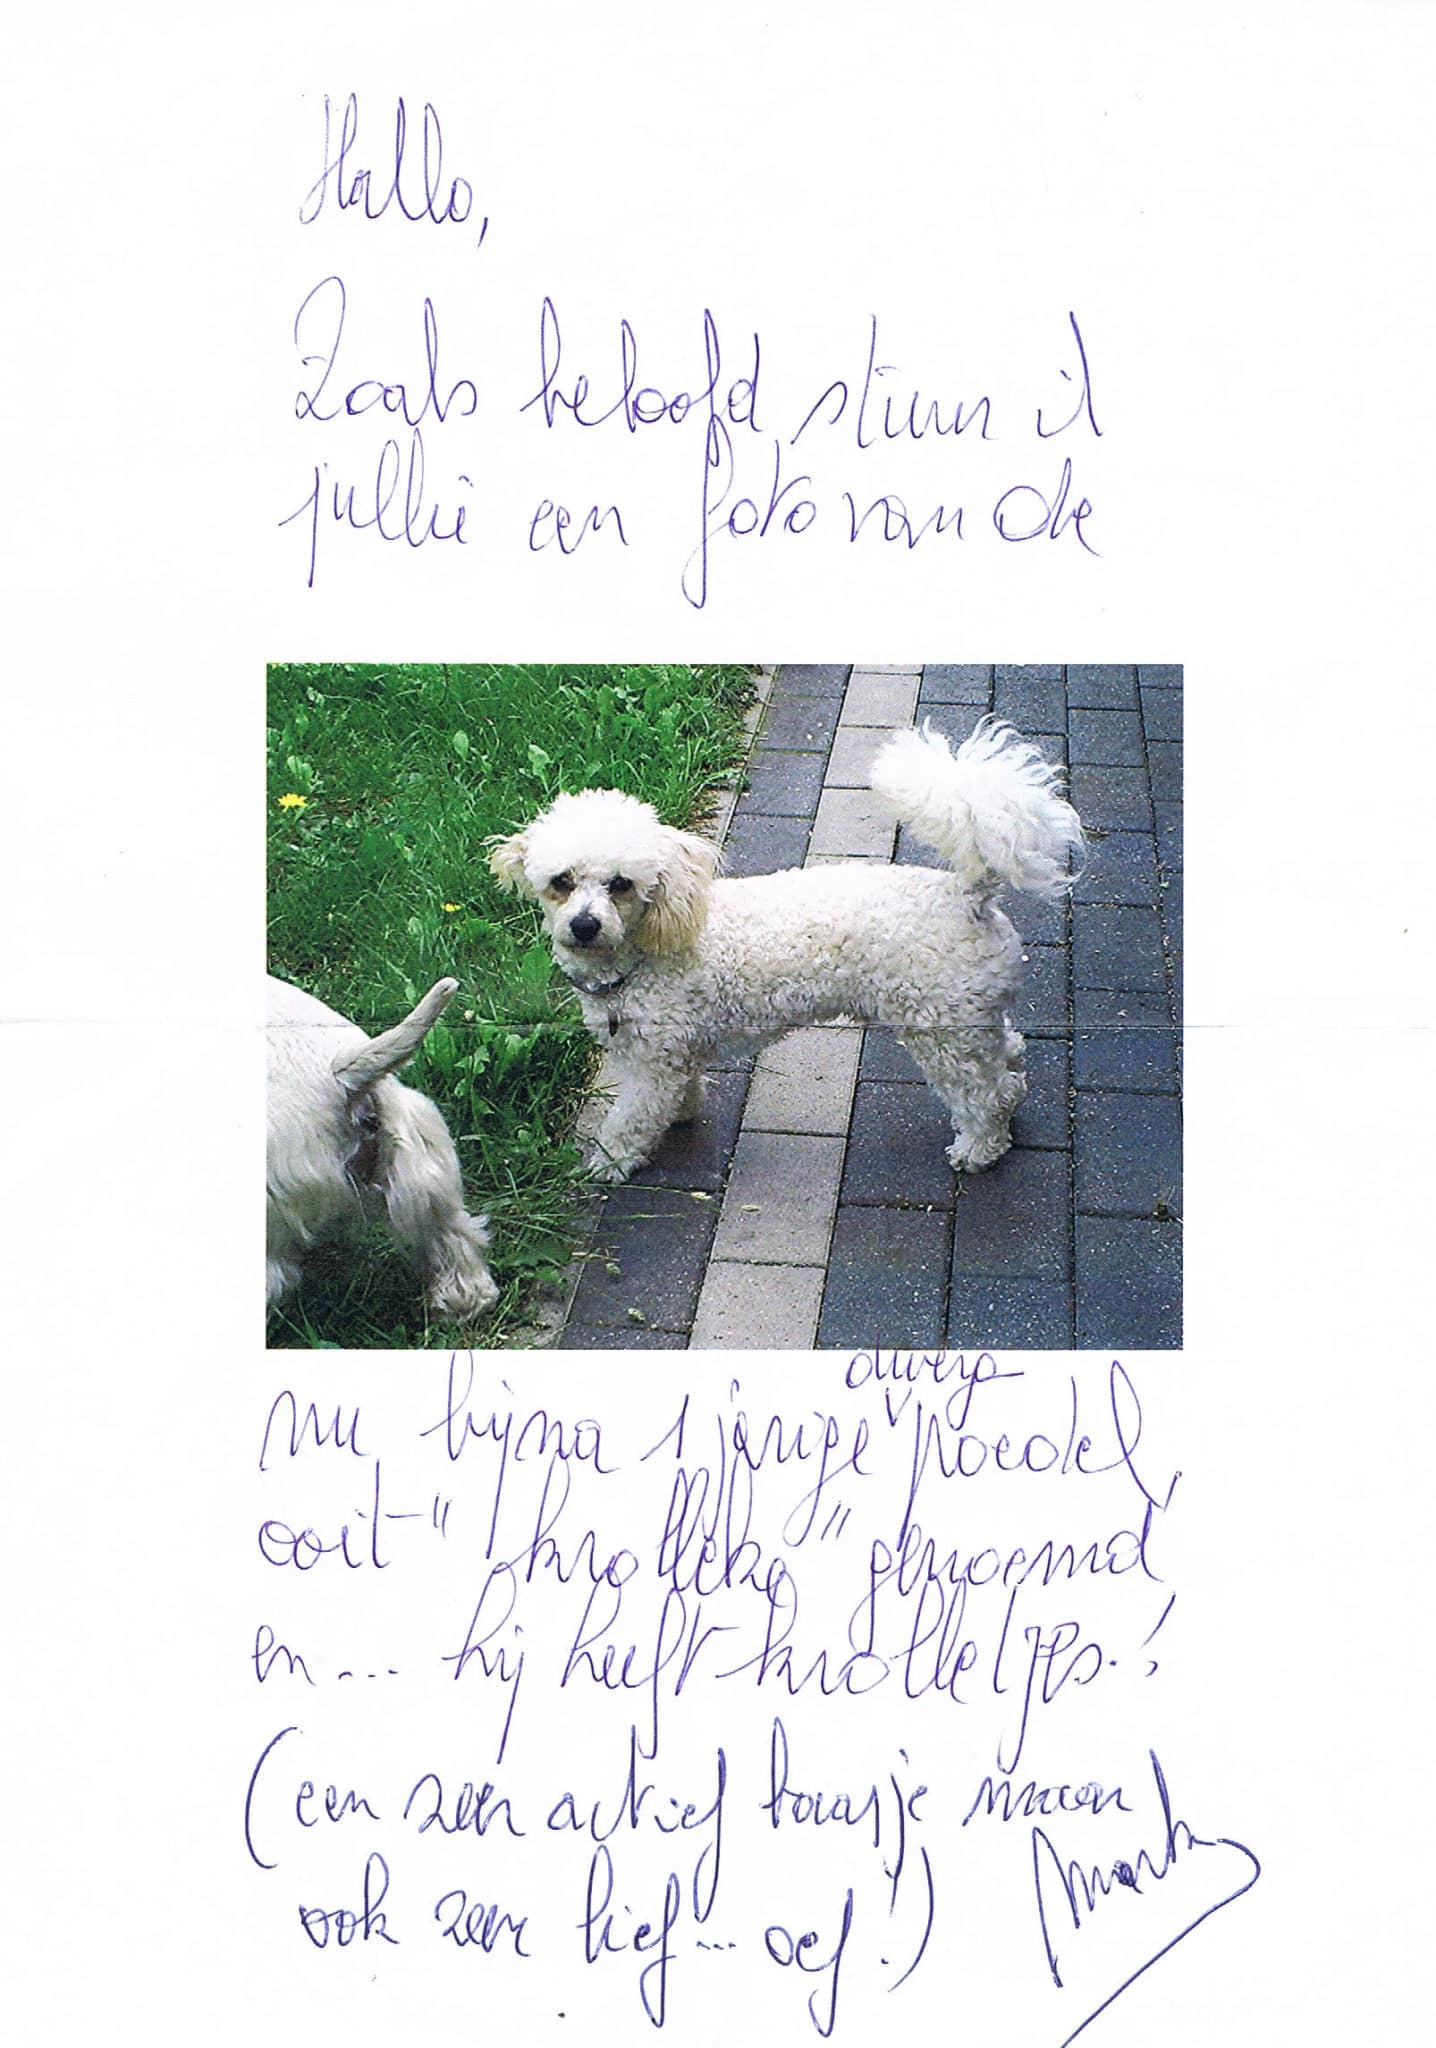 Hallo,
Zoals beloofd stuur ik
jullie een foto van de
nu bijna 1 jarige dwerg poedel,
ooit "krolleke" genoemd
en... hij heeft krolletjes.!
(een zeer actief baasje maar
ook zeer lief... oef!)